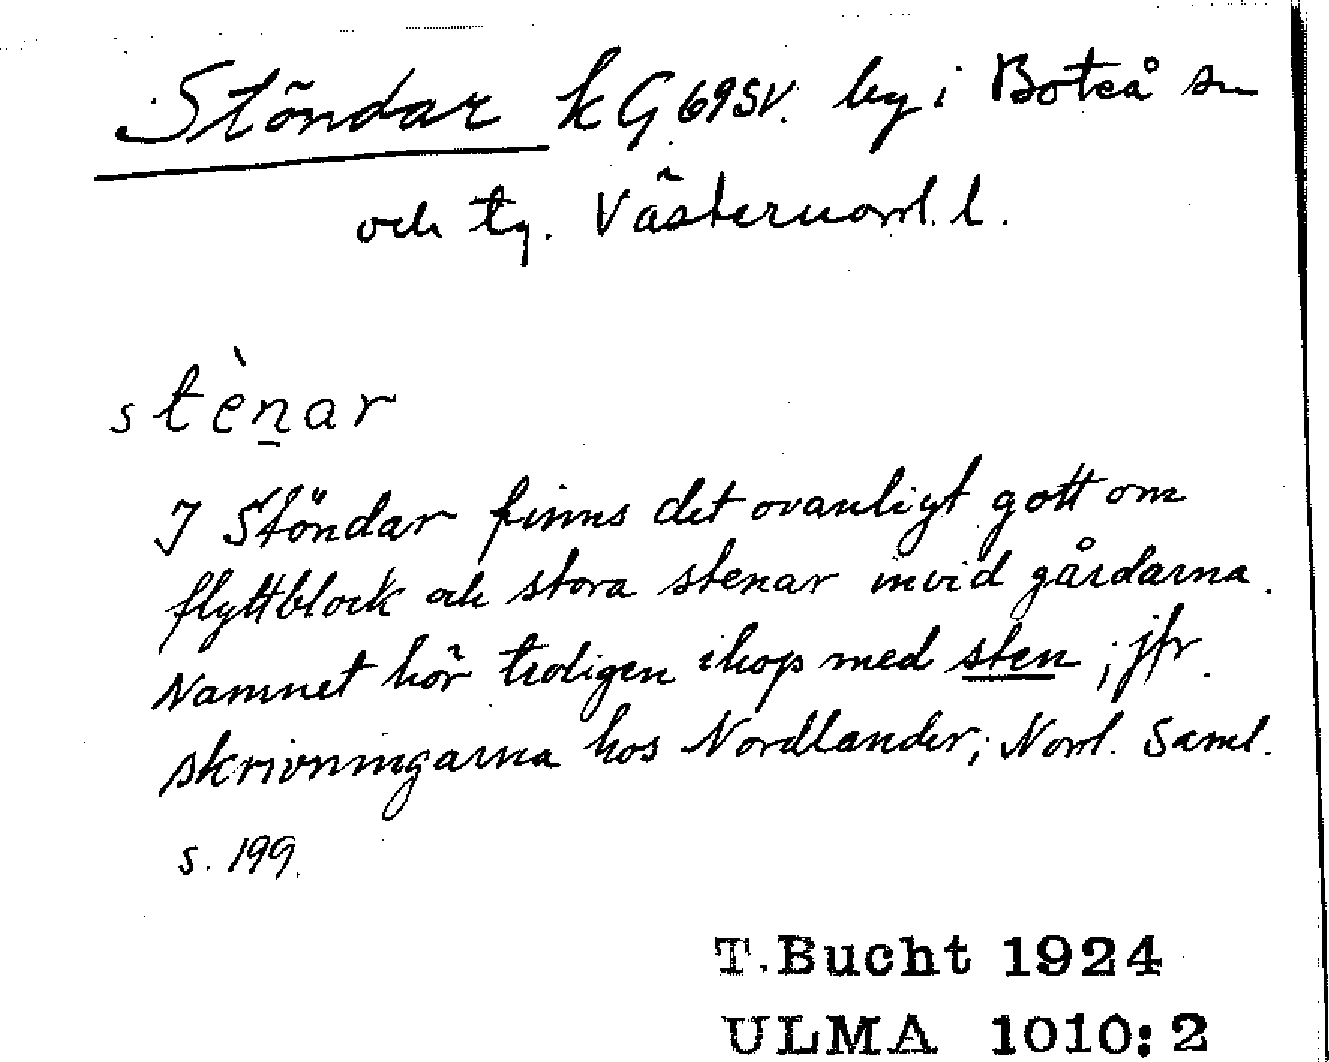 Stöndar k G 69 SV. by i Boteå sn
och tg. Västernorrl. l.
stènar
I Stöndar finns det ovanligt gott om
flyttblock och stora stenar invid gårdarna.
Namnet hör troligen ihop med sten; jfr.
skrivningarna hos Nordlander, Norrl. Saml.
s. 199.
T. Bucht 1924
ULMA 1010:2